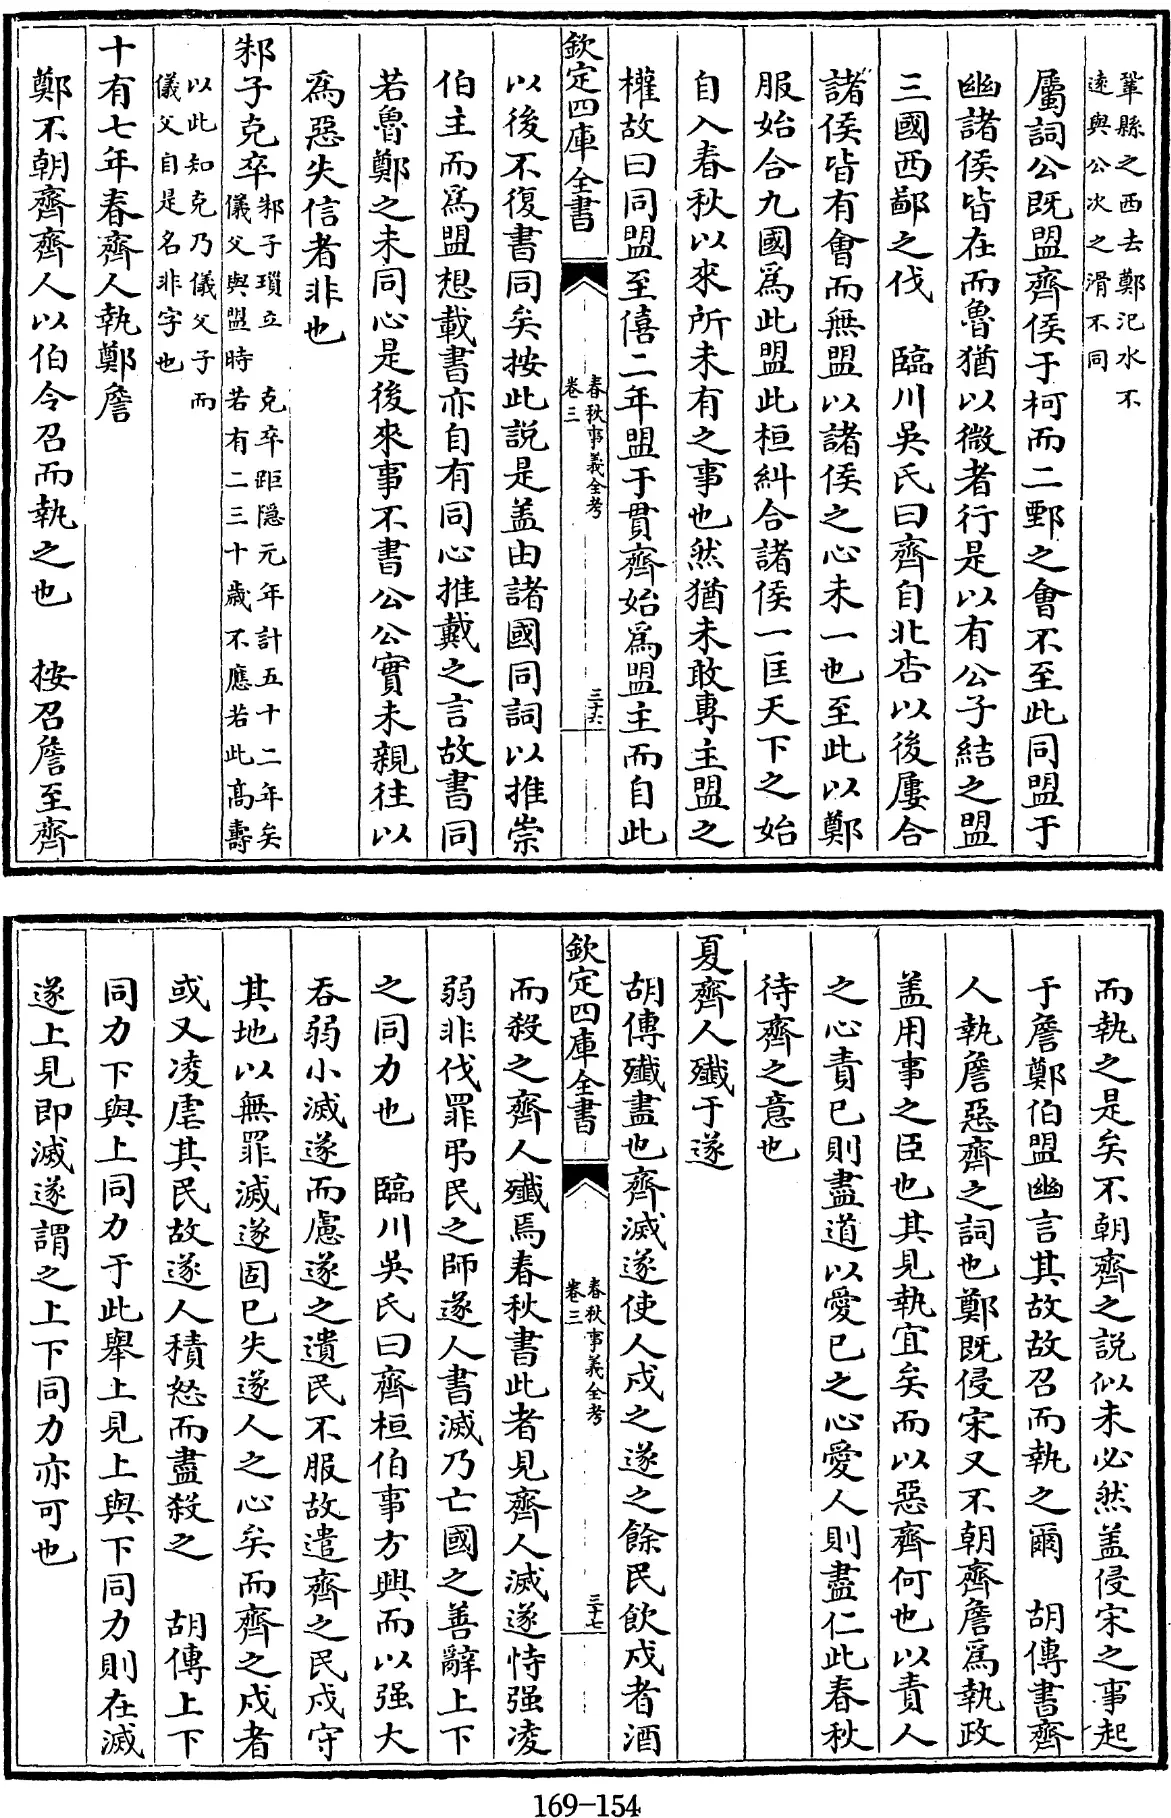 鞏縣之西去鄭氾水不
遠與公次之滑不同
屬詞公既盟齊侯于柯而二鄄之會不至此同盟于
幽諸侯皆在而魯猶以微者行是以有公子結之盟
三國西鄙之伐　臨川吳氏曰齊自北杏以後屢合
諸侯皆有會而無盟以諸侯之心未一也至此以鄭
服始合九國爲此盟此桓糾合諸侯一匡天下之始
自入春秋以來所未有之事也然猶未敢專主盟之
權故曰同盟至僖二年盟于貫齊始爲盟主而自此
欽定四庫全書
春秋事義全考
卷三
三十六
以後不復書同矣按此説是盖由諸國同詞以推崇
伯主而爲盟想載書亦自有同心推戴之言故書同
若魯鄭之未同心是後來事不書公公實未親往以
爲惡失信者非也
邾子克卒
邾子瑣立　克卒距隠元年計五十二年矣
儀父與盟時若有二三十歲不應若此高壽
以此知克乃儀父子而
儀父自是名非字也
十有七年春齊人執鄭詹
鄭不朝齊齊人以伯令召而執之也　按召詹至齊
而執之是矣不朝齊之説似未必然盖侵宋之事起
于詹鄭伯盟幽言其故故召而執之爾　胡傳書齊
人執詹惡齊之詞也鄭既侵宋又不朝齊詹爲執政
盖用事之臣也其見執宜矣而以惡齊何也以責人
之心責已則盡道以愛已之心愛人則盡仁此春秋
待齊之意也
夏齊人殲于遂
胡傳殲盡也齊滅遂使人戍之遂之餘民飲戍者酒
欽定四庫全書
春秋事義全考
卷三
三十七
而殺之齊人殲焉春秋書此者見齊人滅遂恃强凌
弱非伐罪弔民之師遂人書滅乃亡國之善辭上下
之同力也　臨川吳氏曰齊桓伯事方興而以强大
吞弱小滅遂而慮遂之遺民不服故遣齊之民戍守
其地以無罪滅遂固已失遂人之心矣而齊之戍者
或又凌虐其民故遂人積怒而盡殺之　胡傳上下
同力下與上同力于此舉上見上與下同力則在滅
遂上見即滅遂謂之上下同力亦可也
169-154